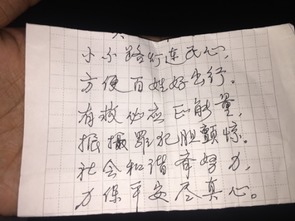 小小路灯连民心，
方便百姓好出行。
有效伤应正能量，
振摄罪犯胆颤惊。
社会和谐齐努力，
力保平安尽真心。